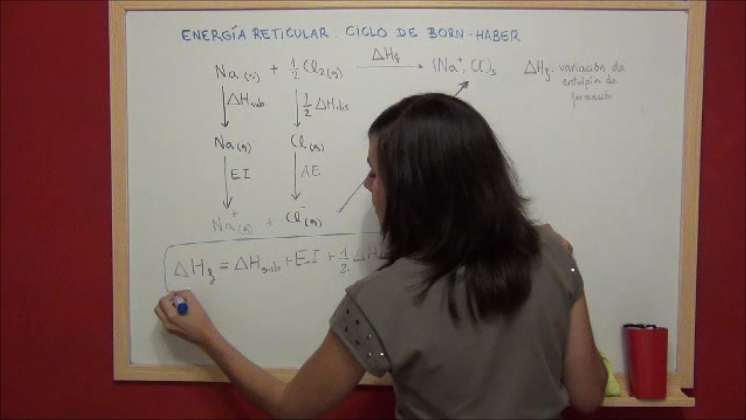 ENERGÍA RETICULAR. CICLO DE BORN-HABER
Na(s) + 1/2 Cl2(g) ΔHf (Na+, Cl-)s
ΔHf: variación de
entalpía de
formación
ΔHsub 1/2 ΔHdis
Na(g) Cl(g)
EI AE
Na+(g) + Cl-(g)
ΔHf = ΔHsub + EI + 1/2 ΔH